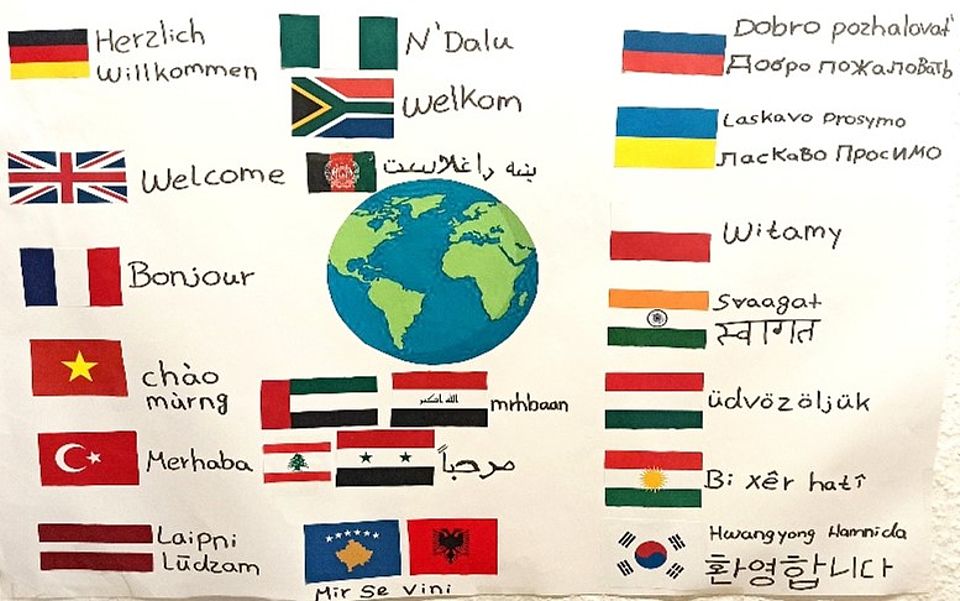 Herzlich
Willkommen
Welcome
Bonjour
chào
màrng
Merhaba
Laipni
Lūdzam
N'Dalu
Welkom
ښه راغلاست
الله اكبر
mrhbaan
مرحباً
Mir Se Vini
Dobro pozhalovat'
Добро пожаловать
Laskavo Prosymo
Ласкаво Просимо
Witamy
Svaagat
स्वागत
üdvözöljük
Bi xêr hatî
Hwangyong Hamnida
환영합니다